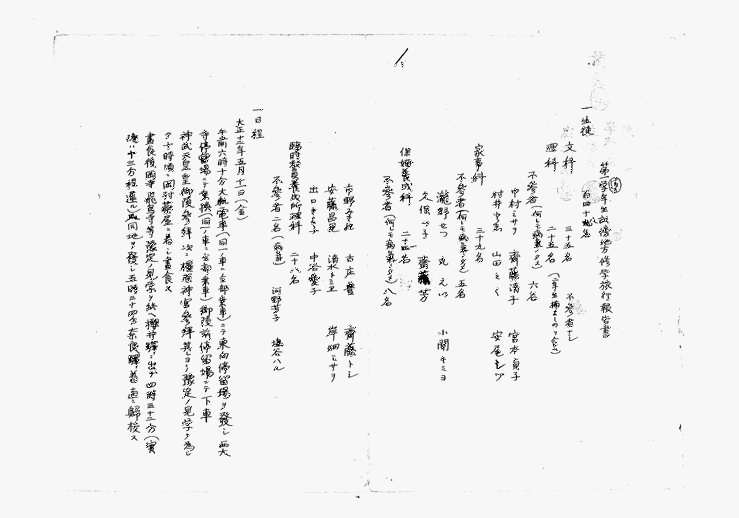 第一学年生畝傍地方修学旅行報告書
一、生徒 百四十九名
文科 三十五名 不参者ナシ
理科 二十五名
不参者(何レモ病気ノタメ) 六名
中村ミサヲ 齋藤清子 宮本貞子
村井 山田とく 安尾
家事科 三十九名
不参者(何レモ病気ノタメ) 五名
瀧野せつ 丸えい 小関キミヨ
久保 子 芳
保姆養成科 二十四名
不参者(何レモ病気ノタメ) 八名
古野 古庄 齋藤トシ
安藤昌 清水トミヱ 岸畑ミサヲ
出口 子 中谷愛子
臨時教員養成所理科 二十八名
不参者二名(病気) 河野芳子 塩谷ハル
一、日程
大正十三年五月 日(金)
午前六時十分大軌電車(同一ノ車ニ全部乗車)ニテ東向停留場ヲ発シ西大
寺停留場ニテ乗換(同一ノ車ニ全部乗車)御陵前停留場ニテ下車
神武天皇御陵参拝次ニ橿原神宮参拝其レヨリ予定ノ見学ヲ為シ
十時頃岡村 屋ニ着シ昼食ス
昼食後岡寺飛鳥寺等予定ノ見学ヲ終ヘ櫻井駅ニ出デ四時三十二分(実
際ハ十三分程遅ル)同地ヲ発シ五時三十四分奈良駅ニ着直ニ帰校ス